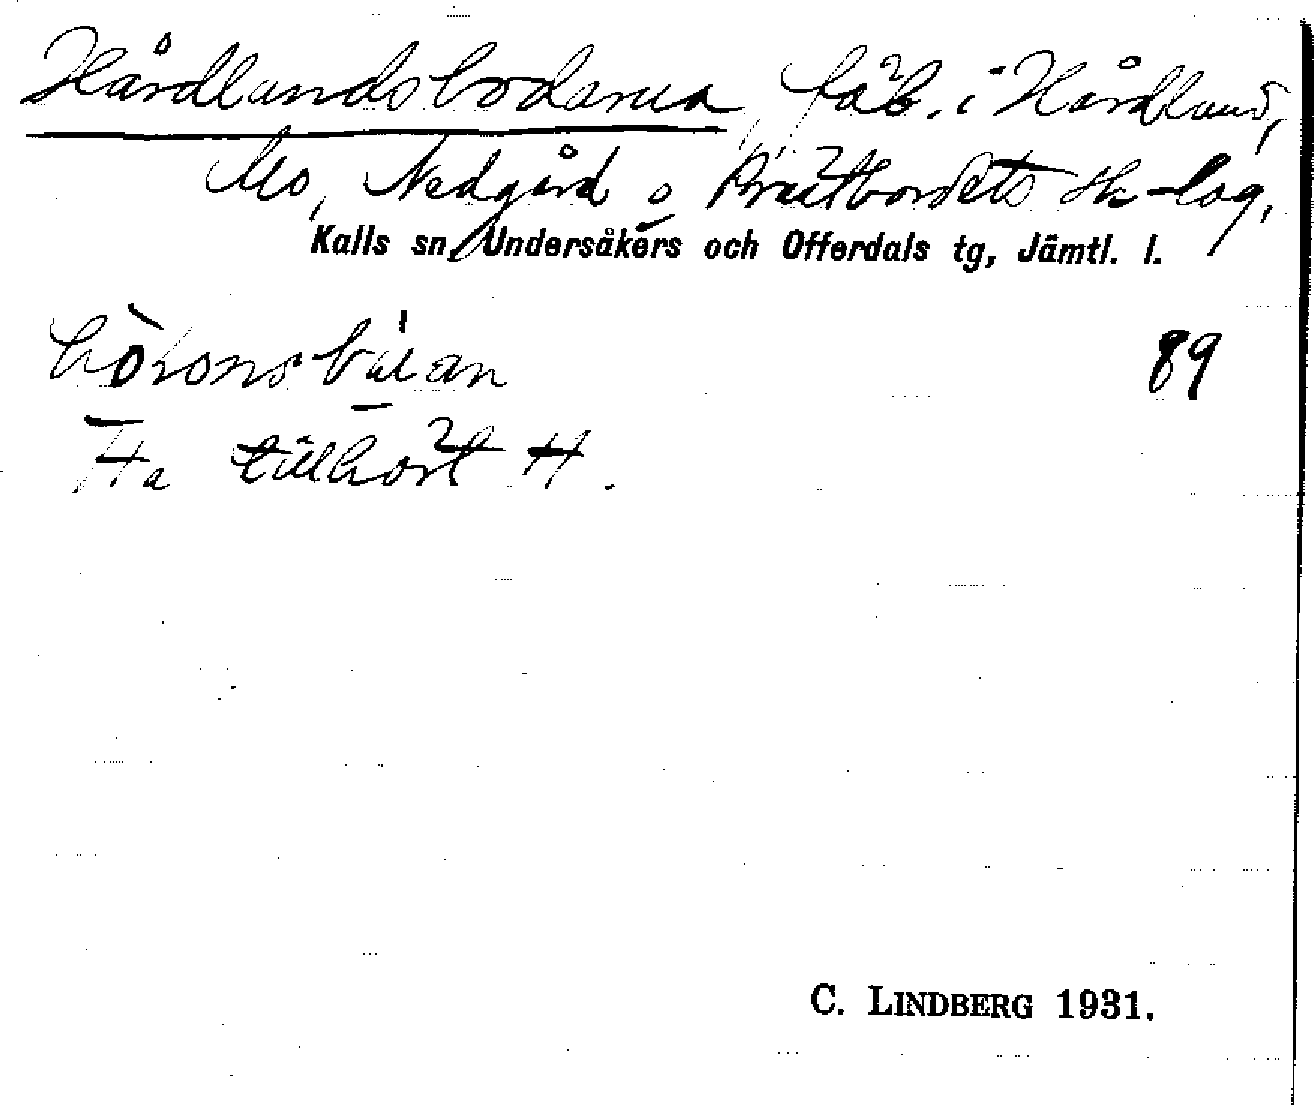 Hårdlandsbodarna, fäb. i Hårdland,
Mo, Nedgård o Prästbordets sk-lag,
Kalls sn, Undersåkers och Offerdals tg, Jämtl. l.
89
Ha tillhört H.
C. LINDBERG 1931.